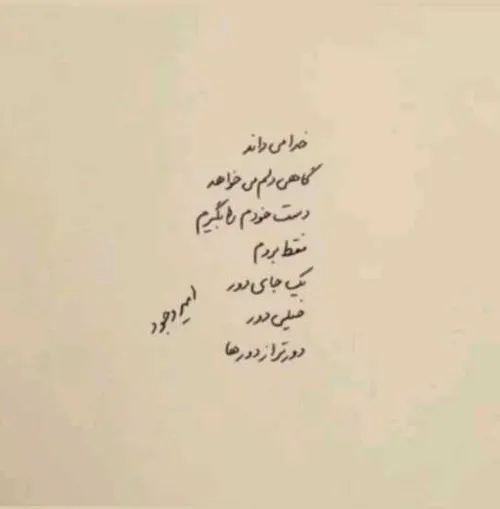 خدا می داند
گاهی دلم می خواهد
دست خودم را بگیرم
فقط بروم
یک جای دور
خیلی دور
دورتر از دورها
امیر وجود